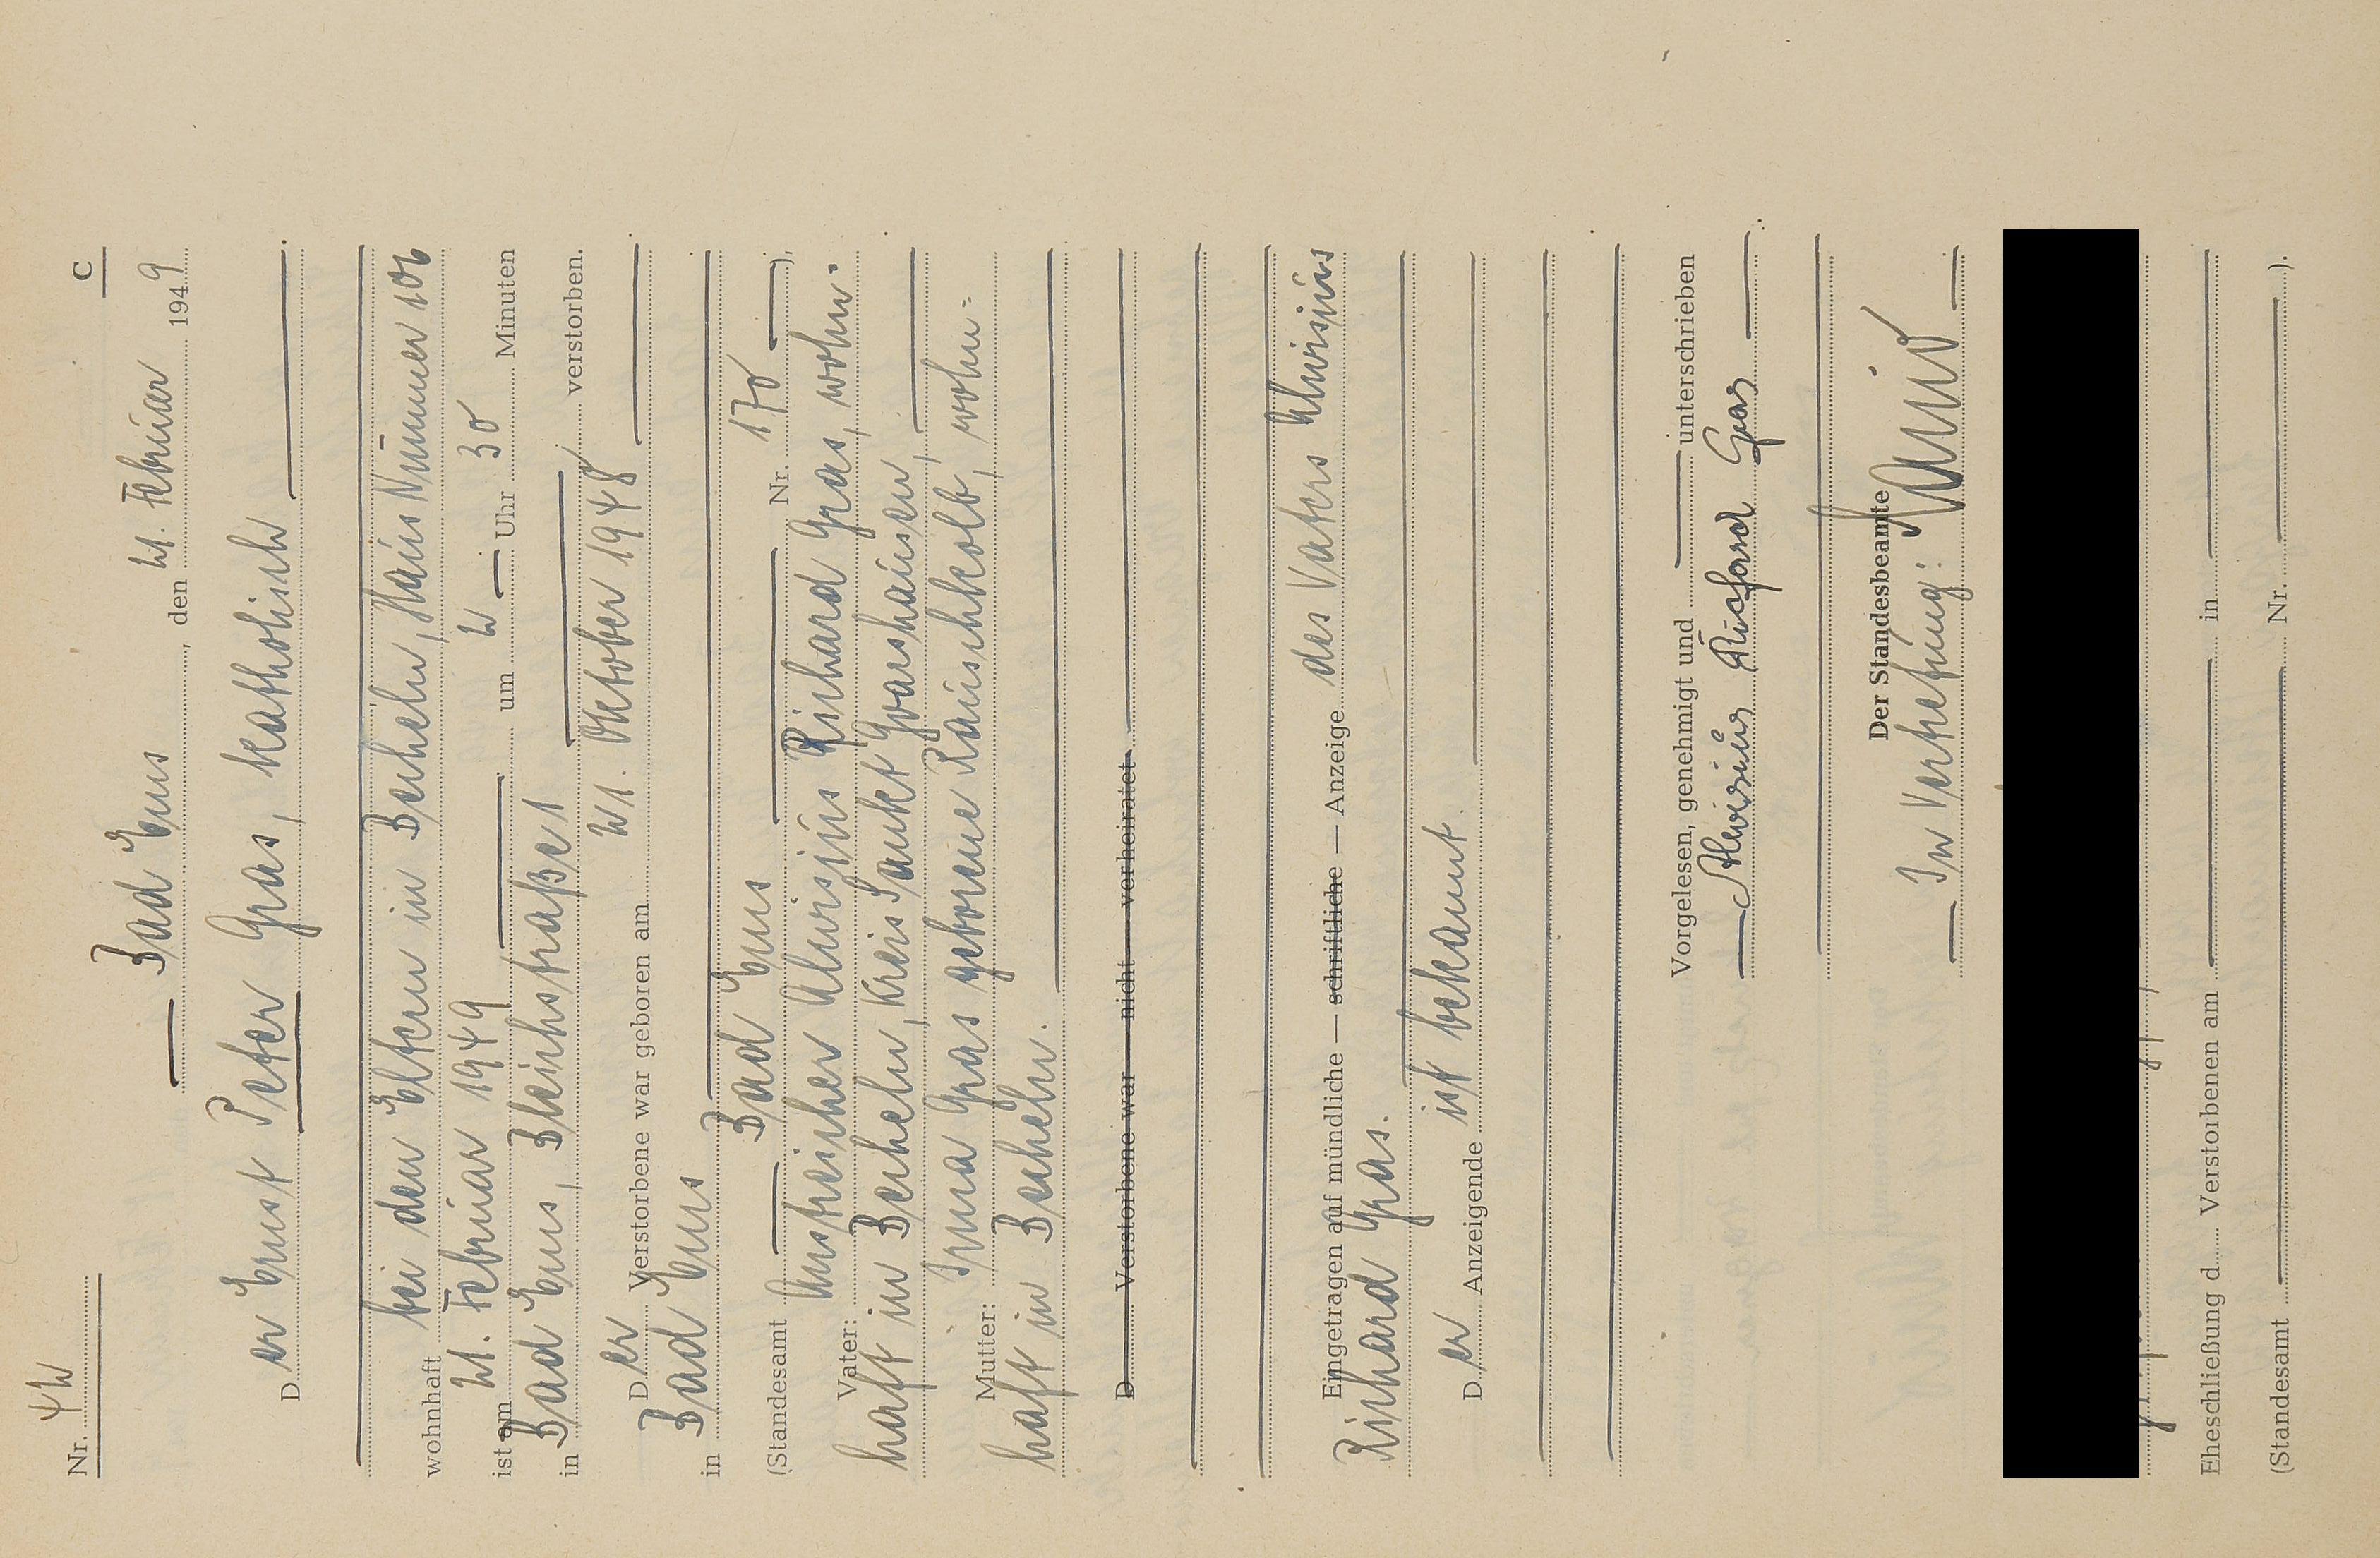 Nr. 42 C
Bad Ems, den 21. Februar 1949
Der Ernst Peter Gras, katholisch
wohnhaft bei den Eltern in Becheln, Haus Nummer 106
ist am 21. Februar 1949 um 2 Uhr 30 Minuten
in Bad Ems, Bleichstraße 1 verstorben.
Der Verstorbene war geboren am 21. Oktober 1948
in Bad Ems
(Standesamt Bad Ems Nr. 170 ),
Vater: Anstreicher Aloisius Richard Gras, wohn-
haft in Becheln, Kreis Sankt Goarshausen,
Mutter: Irma Gras geborene Rauschkolb, wohn=
haft in Becheln.
D Verstorbene war — nicht — verheiratet
Eingetragen auf mündliche — schriftliche — Anzeige des Vaters Aloisius
Richard Gras.
Der Anzeigende ist bekannt.
Vorgelesen, genehmigt und unterschrieben
Aloisius Richard Gras
Der Standesbeamte
In Vertretung:
Eheschließung d Verstorbenen am in
(Standesamt Nr. ).